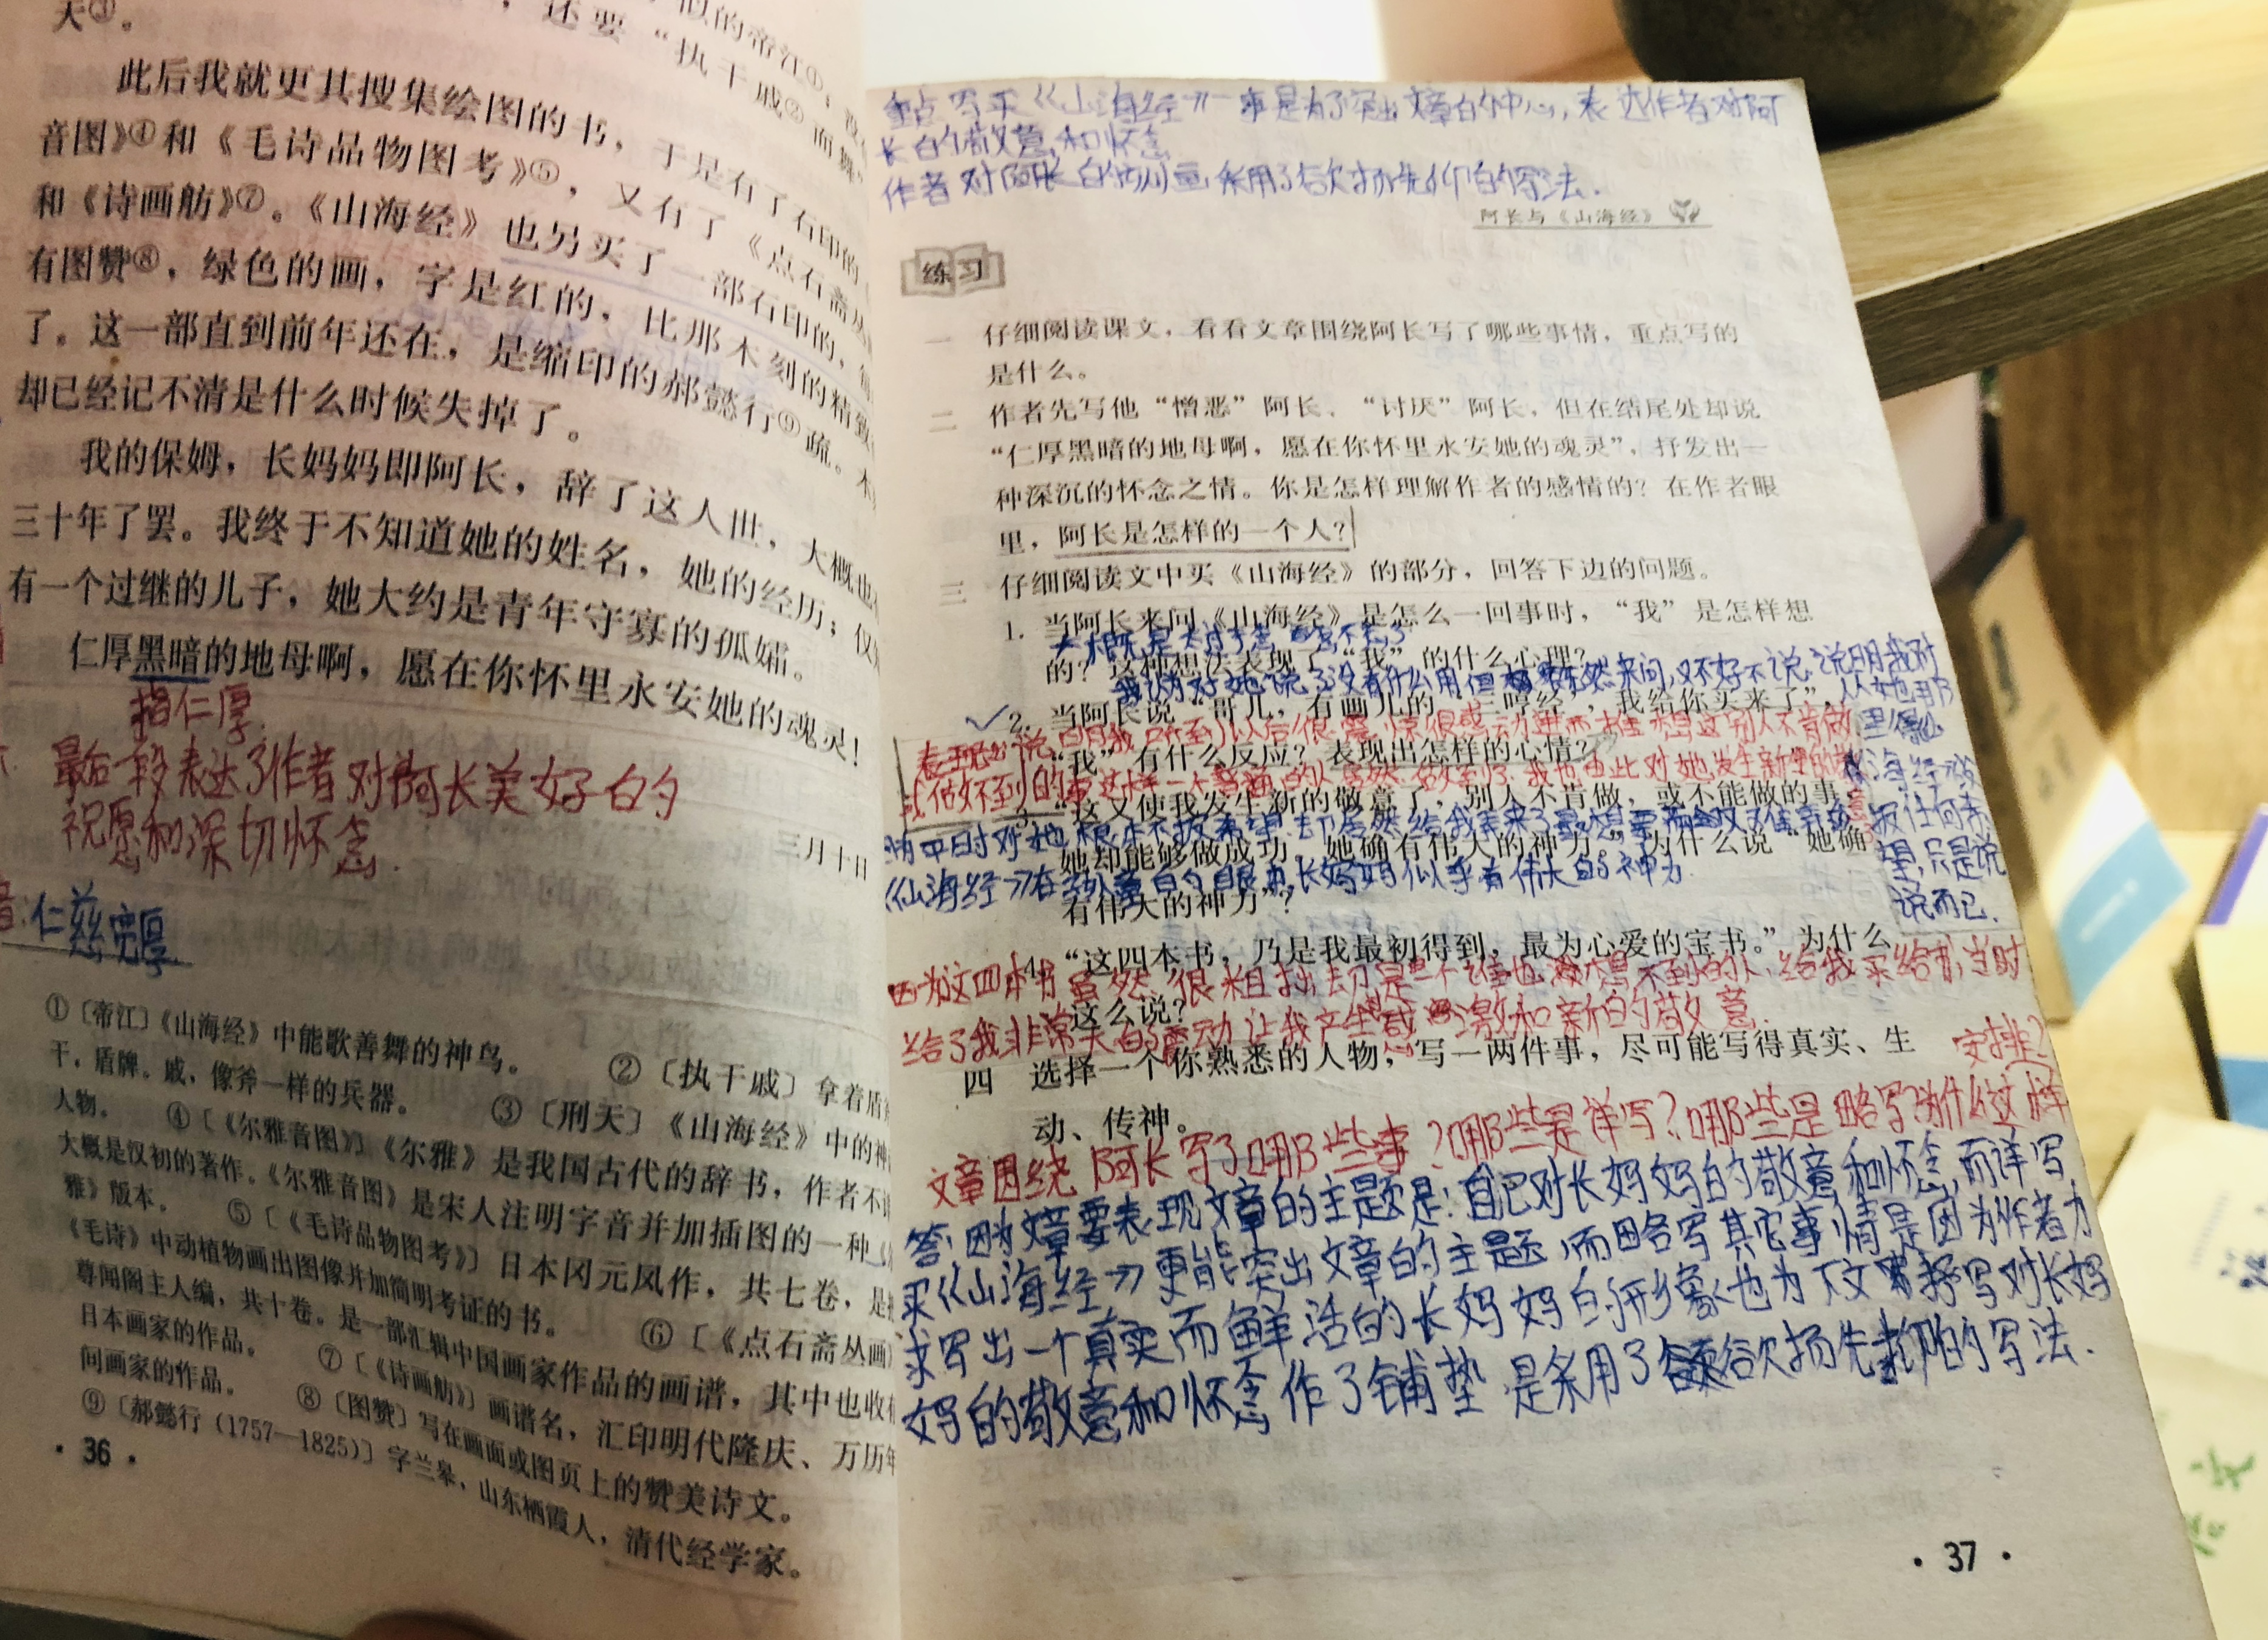 天③。
似的帝江①
，还要“执干戚②而舞”
此后我就更其搜集绘图的书，于是有了石印的
音图》④和《毛诗品物图考》⑤，又有了《点石斋丛
和《诗画舫》⑦。《山海经》也另买了一部石印的，每
有图赞⑧，绿色的画，字是红的，比那木刻的精致
了。这一部直到前年还在，是缩印的郝懿行⑨疏。木
却已经记不清是什么时候失掉了。
我的保姆，长妈妈即阿长，辞了这人世，大概也
三十年了罢。我终于不知道她的姓名，她的经历；仅
有一个过继的儿子，她大约是青年守寡的孤孀。
仁厚黑暗的地母啊，愿在你怀里永安她的魂灵！
指仁厚.
最后一段表达了作者对阿长美好的
祝愿和深切怀念.
三月十日
仁慈宽厚
①〔帝江〕《山海经》中能歌善舞的神鸟。 ②〔执干戚〕拿着盾
干，盾牌。戚，像斧一样的兵器。 ③〔刑天〕《山海经》中的神
人物。 ④〔《尔雅音图》〕《尔雅》是我国古代的辞书，作者不
大概是汉初的著作。《尔雅音图》是宋人注明字音并加插图的一种《
雅》版本。 ⑤〔《毛诗品物图考》〕日本冈元凤作，共七卷，是
《毛诗》中动植物画出图像并加简明考证的书。 ⑥〔《点石斋丛画
尊闻阁主人编，共十卷。是一部汇辑中国画家作品的画谱，其中也收
日本画家的作品。 ⑦〔《诗画舫》〕画谱名，汇印明代隆庆、万历年
间画家的作品。 ⑧〔图赞〕写在画面或图页上的赞美诗文。
⑨〔郝懿行（1757—1825）〕字兰皋，山东栖霞人，清代经学家。
· 36 ·
重点写买《山海经》一事是为了突出文章的中心，表达作者对阿
长的敬意和怀念
作者对阿长的刻画采用了欲扬先抑的写法.
阿长与《山海经》
练习
一 仔细阅读课文，看看文章围绕阿长写了哪些事情，重点写的
是什么。
二 作者先写他“憎恶”阿长、“讨厌”阿长，但在结尾处却说
“仁厚黑暗的地母啊，愿在你怀里永安她的魂灵”，抒发出一
种深沉的怀念之情。你是怎样理解作者的感情的？在作者眼
里，阿长是怎样的一个人？
三 仔细阅读文中买《山海经》的部分，回答下边的问题。
1. 当阿长来问《山海经》是怎么一回事时，“我”是怎样想
的？这种想法表现了“我”的什么心理？
我认为对她说了没有什么用但 然来问，又不好不说.说明我对
2. 当阿长说“哥儿，有画儿的‘三哼经’，我给你买来了”，
“我”有什么反应？表现出怎样的心情？
或做不到的事这样一个普通的人居然 我也由此对她发生新的敬
3. “这又使我发生新的敬意了，别人不肯做，或不能做的事，
她却能够做成功。她确有伟大的神力。”为什么说“她确
《山海经》在 的眼里，长妈妈似乎有伟大的神力.
有伟大的神力”？
报任何希
望，只是说
说而已.
4. “这四本书，乃是我最初得到，最为心爱的宝书。”为什么
因为这四本书虽然很粗拙，却是一个谁也 想不到的人给我买给我，当时
这么说？
给了我非常大的震动让我产生感激和新的敬意.
四 选择一个你熟悉的人物，写一两件事，尽可能写得真实、生
动、传神。
安排？
文章围绕阿长写了哪些事？哪些是详写？哪些是略写？为什么这样
答：因为文章要表现文章的主题是：自己对长妈妈的敬意和怀念，而详写
买《山海经》更能突出文章的主题，而略写其它事情是因为作者力
求写出一个真实而鲜活的长妈妈的形象也为下文 写对长妈
妈的敬意和怀念作了铺垫.是采用了欲扬先抑的写法.
· 37 ·